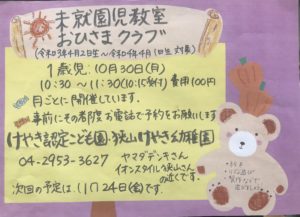 未就園児教室
おひさまクラブ
(令和3年4月2日生〜令和4年4月1日生対象)
1歳児:10月30日(月)
10:30〜11:30(10:15受付) 費用100円
月ごとに開催しています。
事前にその都度お電話で予約をお願いします
けやき認定こども園・狭山けやき幼稚園
04-2953-3627
ヤマダデンキさん
イオンスタイル狭山さん
の近くです。
次回の予定は、11月24日(金)です。